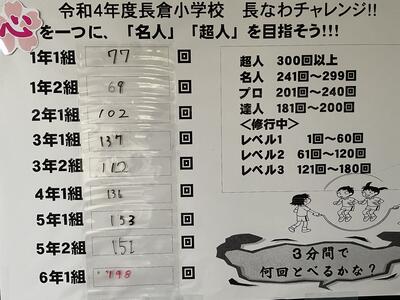 令和4年度長倉小学校 長なわチャレンジ!!
心を一つに、「名人」「超人」を目指そう!!!
1年1組 77 回
1年2組 69 回
2年1組 102 回
3年1組 137 回
3年2組 112 回
4年1組 136 回
5年1組 153 回
5年2組 151 回
6年1組 198 回
超人 300回以上
名人 241回～299回
プロ 201回～240回
達人 181回～200回
＜修行中＞
レベル1 1回～60回
レベル2 61回～120回
レベル3 121回～180回
3分間で
何回とべるかな？